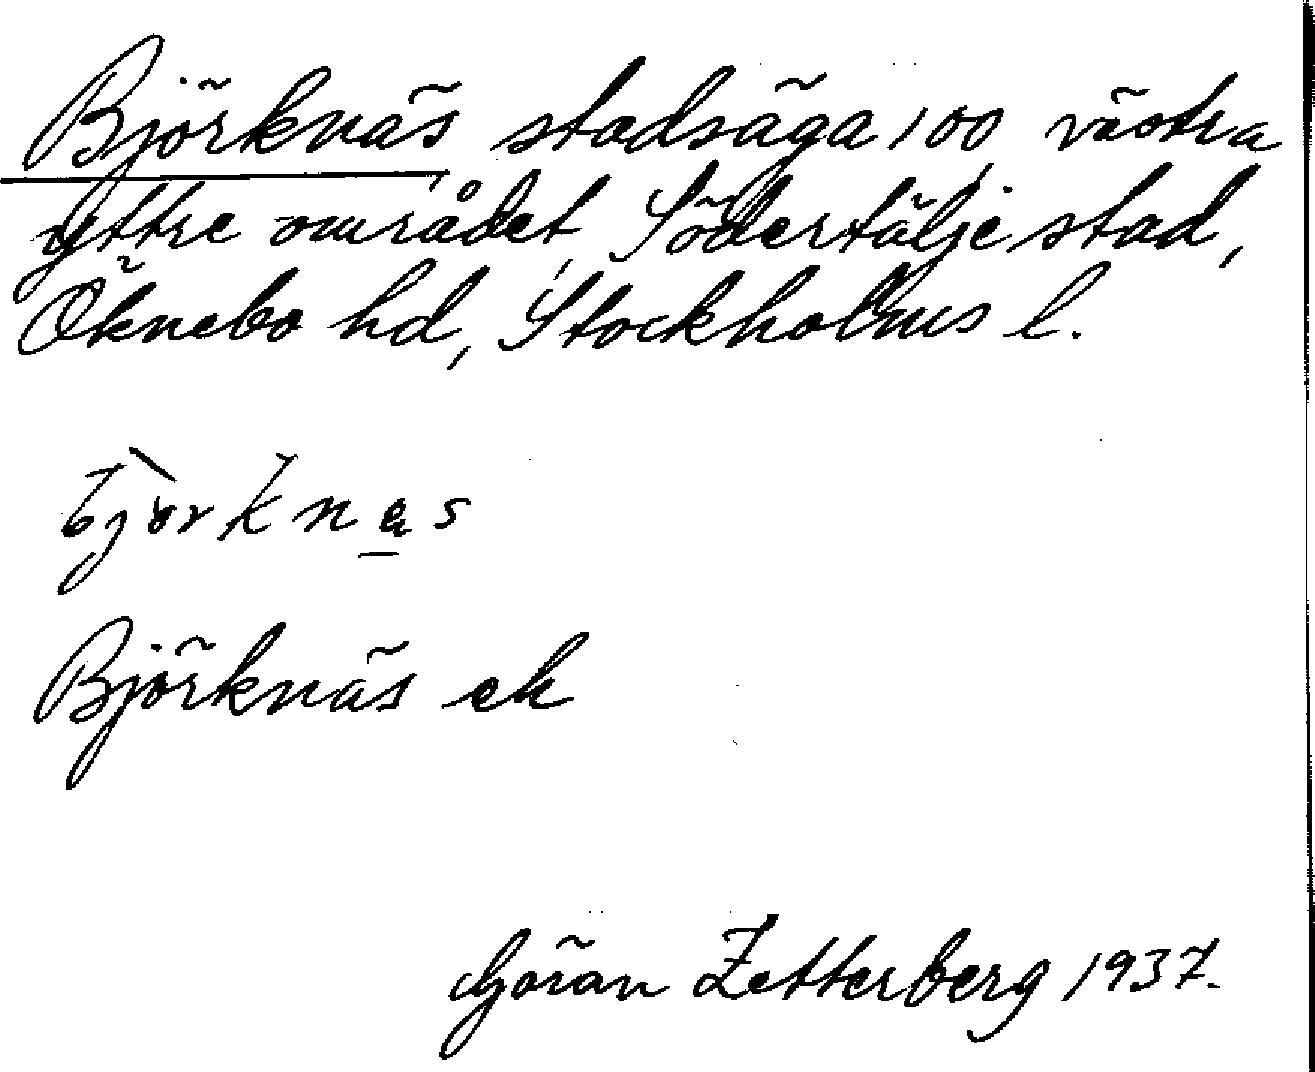 Björknäs, stadsäga 100, västra
yttre området, Södertälje stad,
Öknebo hd, Stockholms l.
Björknäs ek
Göran Zetterberg 1937.